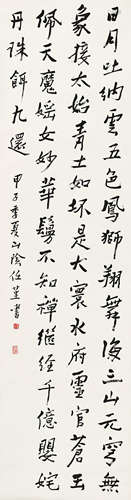 日月吐納雲五色鳳獅翔舞海三山元穹無
象接太始青土如坏是大寰水府靈官蒼玉
佩天魔媱女妙華鬘不知禪經千億嬰姹
丹珠餌九還
甲子季夏山陰任堇書